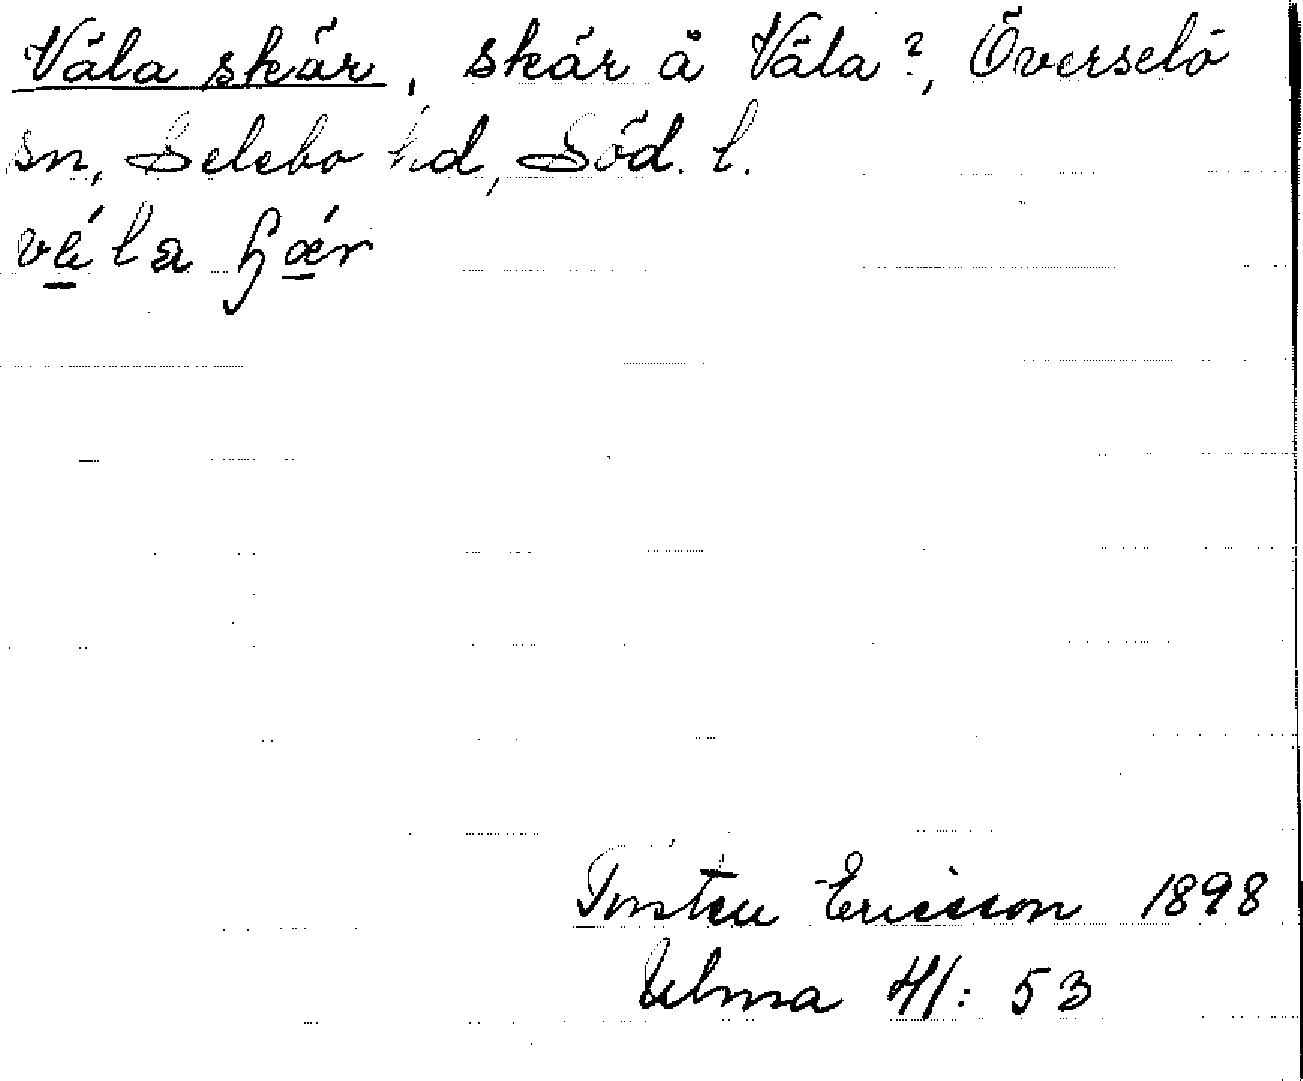 Väla skär, skär å Väla?, Överselö
sn, Selebo hd, Söd. l.
Torsten Ericsson 1898
Ulma 41: 53